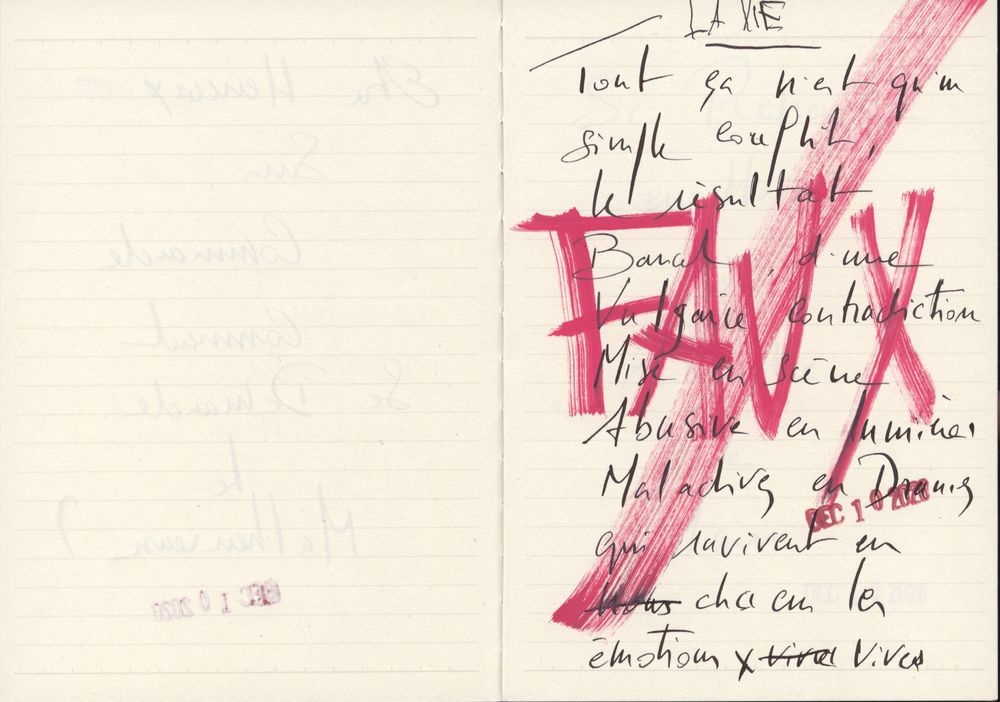 LA VIE
Tout ça n'est qu'un
simple conflit,
le résultat
FAUX
Banal, d'une
Vulgaire contradiction
Mise en scène
Abusive en lumières
Maladives en Drames
DEC 1 0 2020
qui ravivent en
Nous chacun les
émotions x Vives Vives